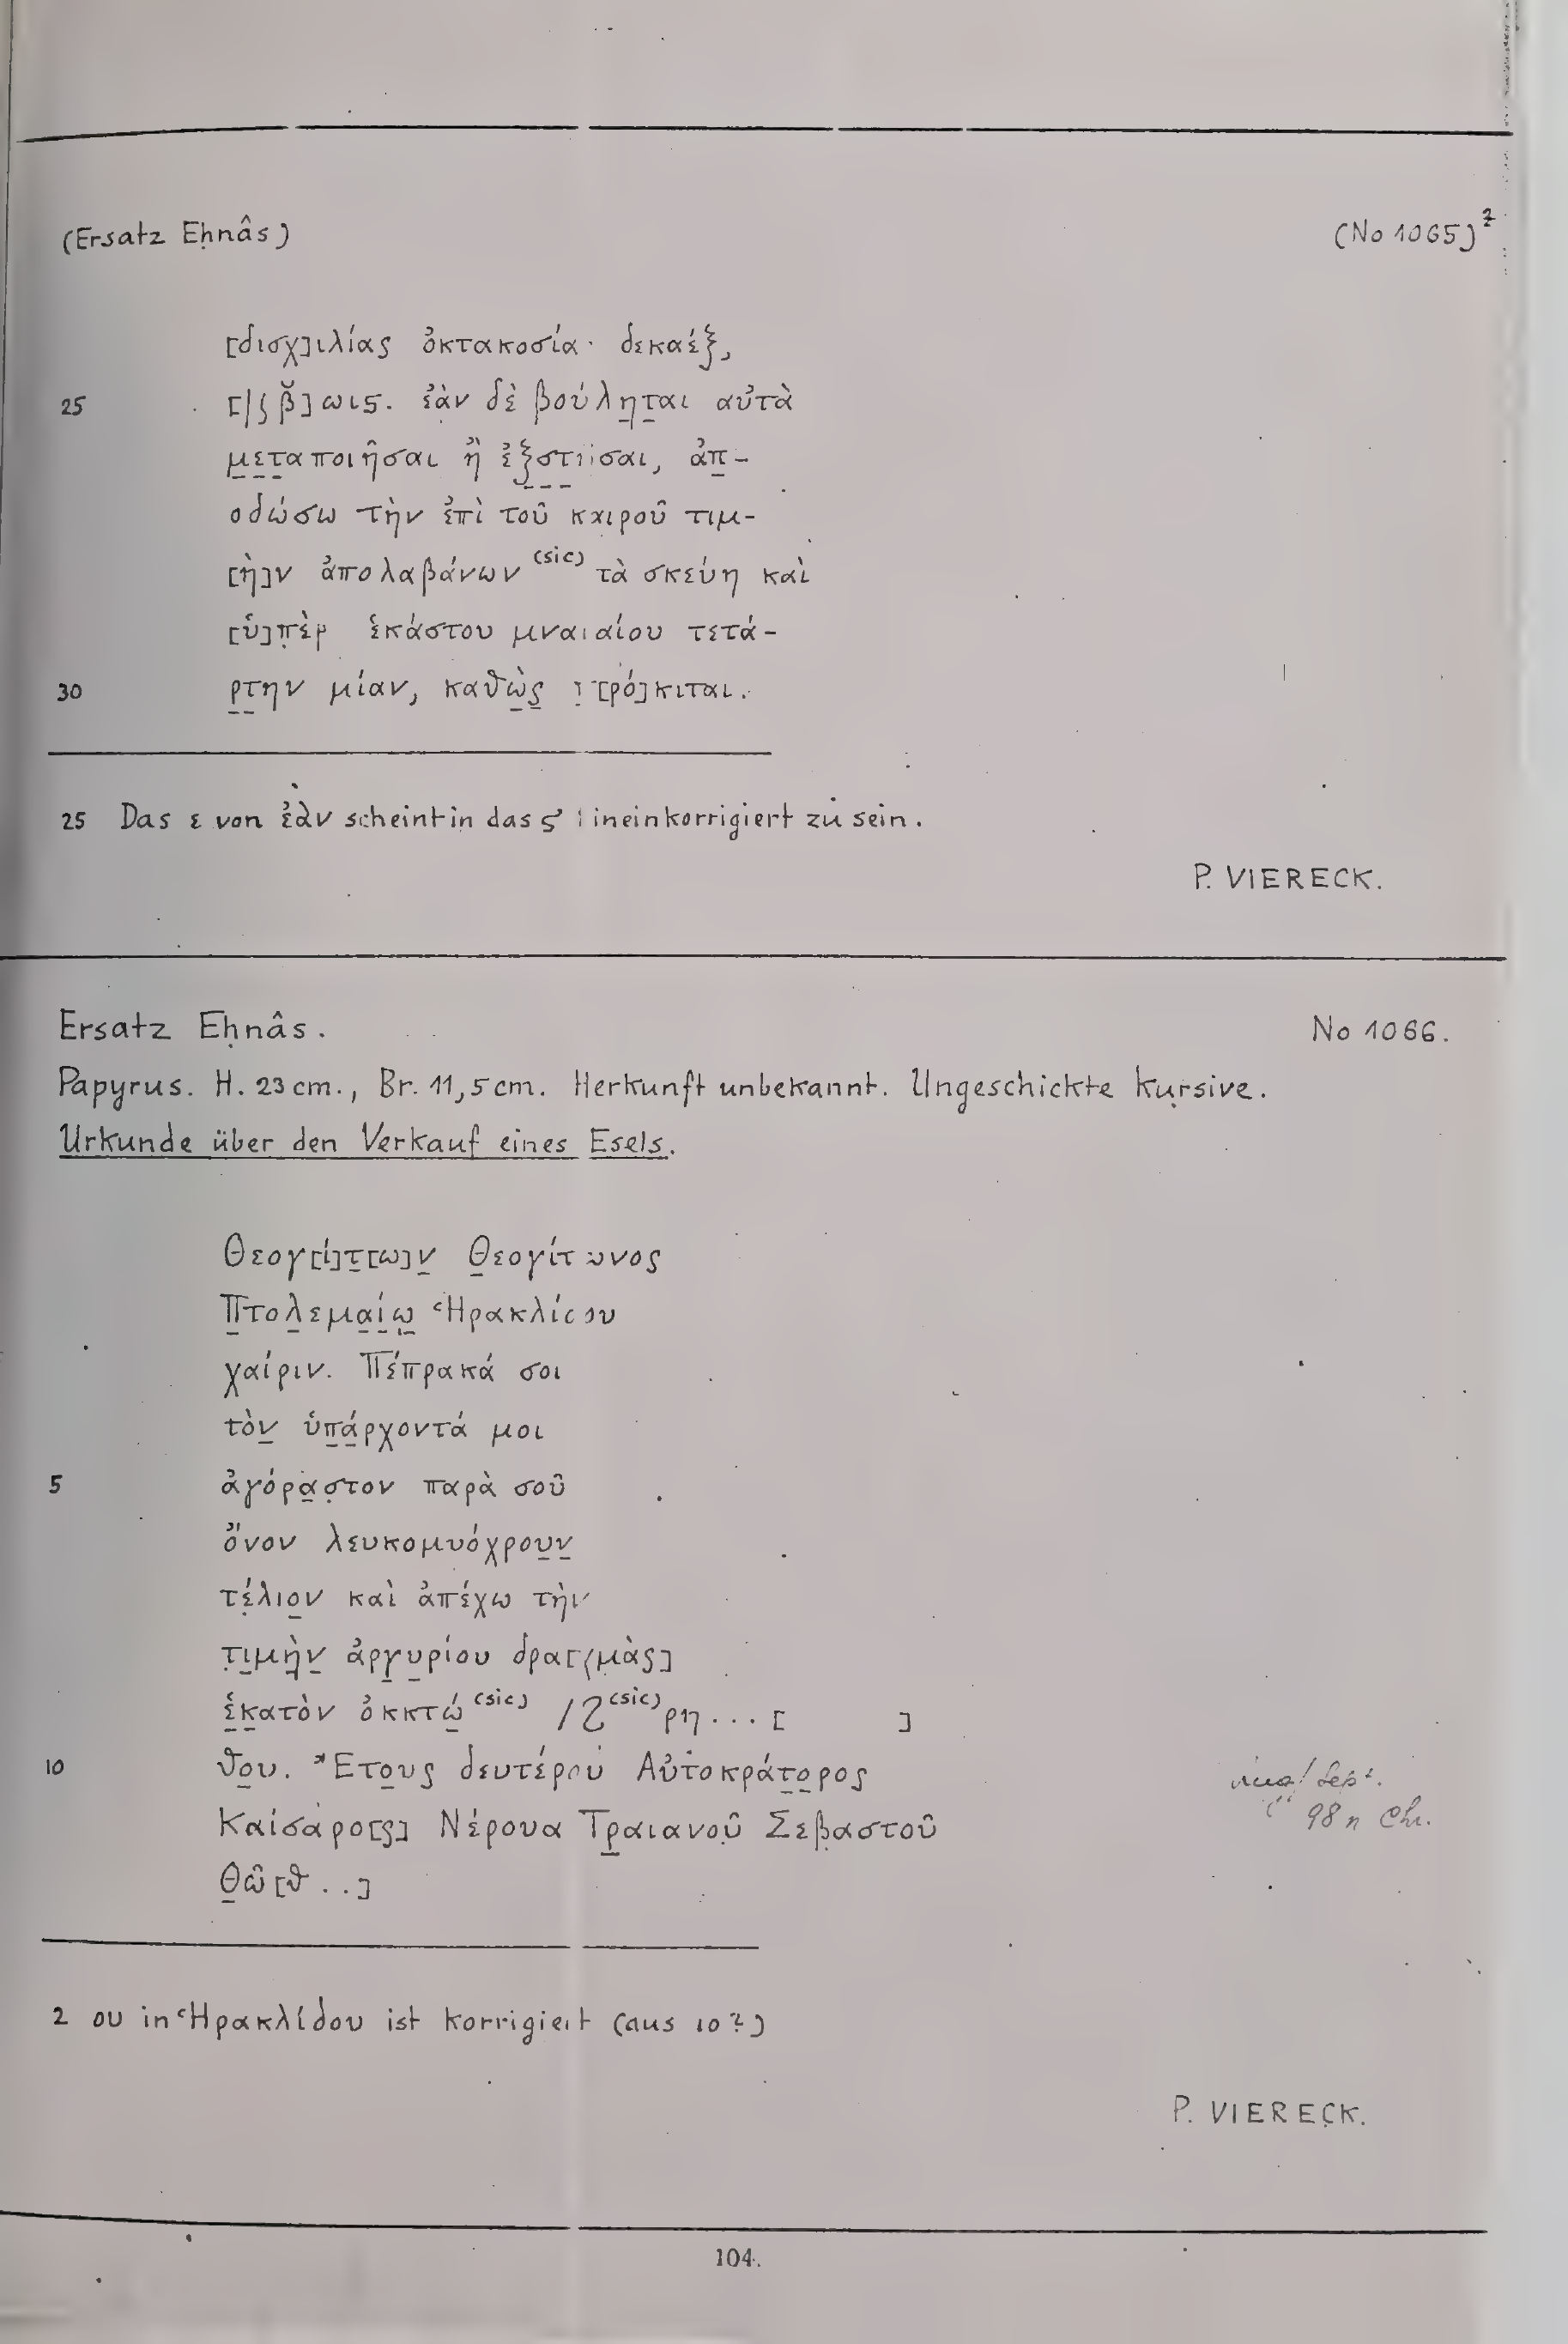 (Ersatz Eḥnâs) (No 1065)²
[δισχ]ιλίας ὀκτακοσία· δεκαέξ,
25 [/ʃ β̆]ωις. ἐὰν δὲ βούλη̣τ̣αι αὐτὰ
μ̣ε̣τ̣αποιῆσαι ἢ ἐξσ̣τ̣ῆ̣σαι, ἀπ̣-
οδώσω τὴν ἐπὶ τοῦ καιροῦ τιμ-
[ὴ]ν ἀπολαβάνων (sic) τὰ σκεύη καὶ
[ὑ]πὲρ ἑκάστου μναιαίου τετά-
30 ρ̣τ̣ην μίαν, καθὼ̣ς̣ π̣[ρό]κιται.
25 Das ε von ἐὰν scheint in das ς hineinkorrigiert zu sein.
P. VIERECK.
Ersatz Eḥnâs. No 1066.
Papyrus. H. 23 cm., Br. 11,5 cm. Herkunft unbekannt. Ungeschickte Kursive.
Urkunde über den Verkauf eines Esels.
Θεογ[ί]τ̣[ω]ν̣ Θ̣εογίτωνος
Π̣τολ̣εμα̣ί̣ῳ̣ Ἡρακλίδου
χαίριν. Πέπρακά σοι
τὸν̣ ὑπ̣ά̣ρχοντά μοι
5 ἀγόρα̣στον παρὰ σοῦ
ὄνον λευκομυόχρου̣ν̣
τέλιο̣ν καὶ ἀπέχω τὴν
τι̣μὴ̣ν̣ ἀργ̣υ̣ρίου δρα[χμὰς]
ἑ̣κ̣ατὸν ὀκκτώ̣ (sic) /Ζ (sic) ρη...[ ]
10 θο̣υ. Ἔτο̣υς δευτέρου Αὐτοκράτ̣ο̣ρος
Καίσαρο[ς] Νέρουα Τρ̣αιανοῦ Σεβαστοῦ
98 n Chr.
Θ̣ῶ[θ ..]
2 ου in Ἡρακλίδου ist korrigiert (aus ιο?)
P. VIERECK.
104.